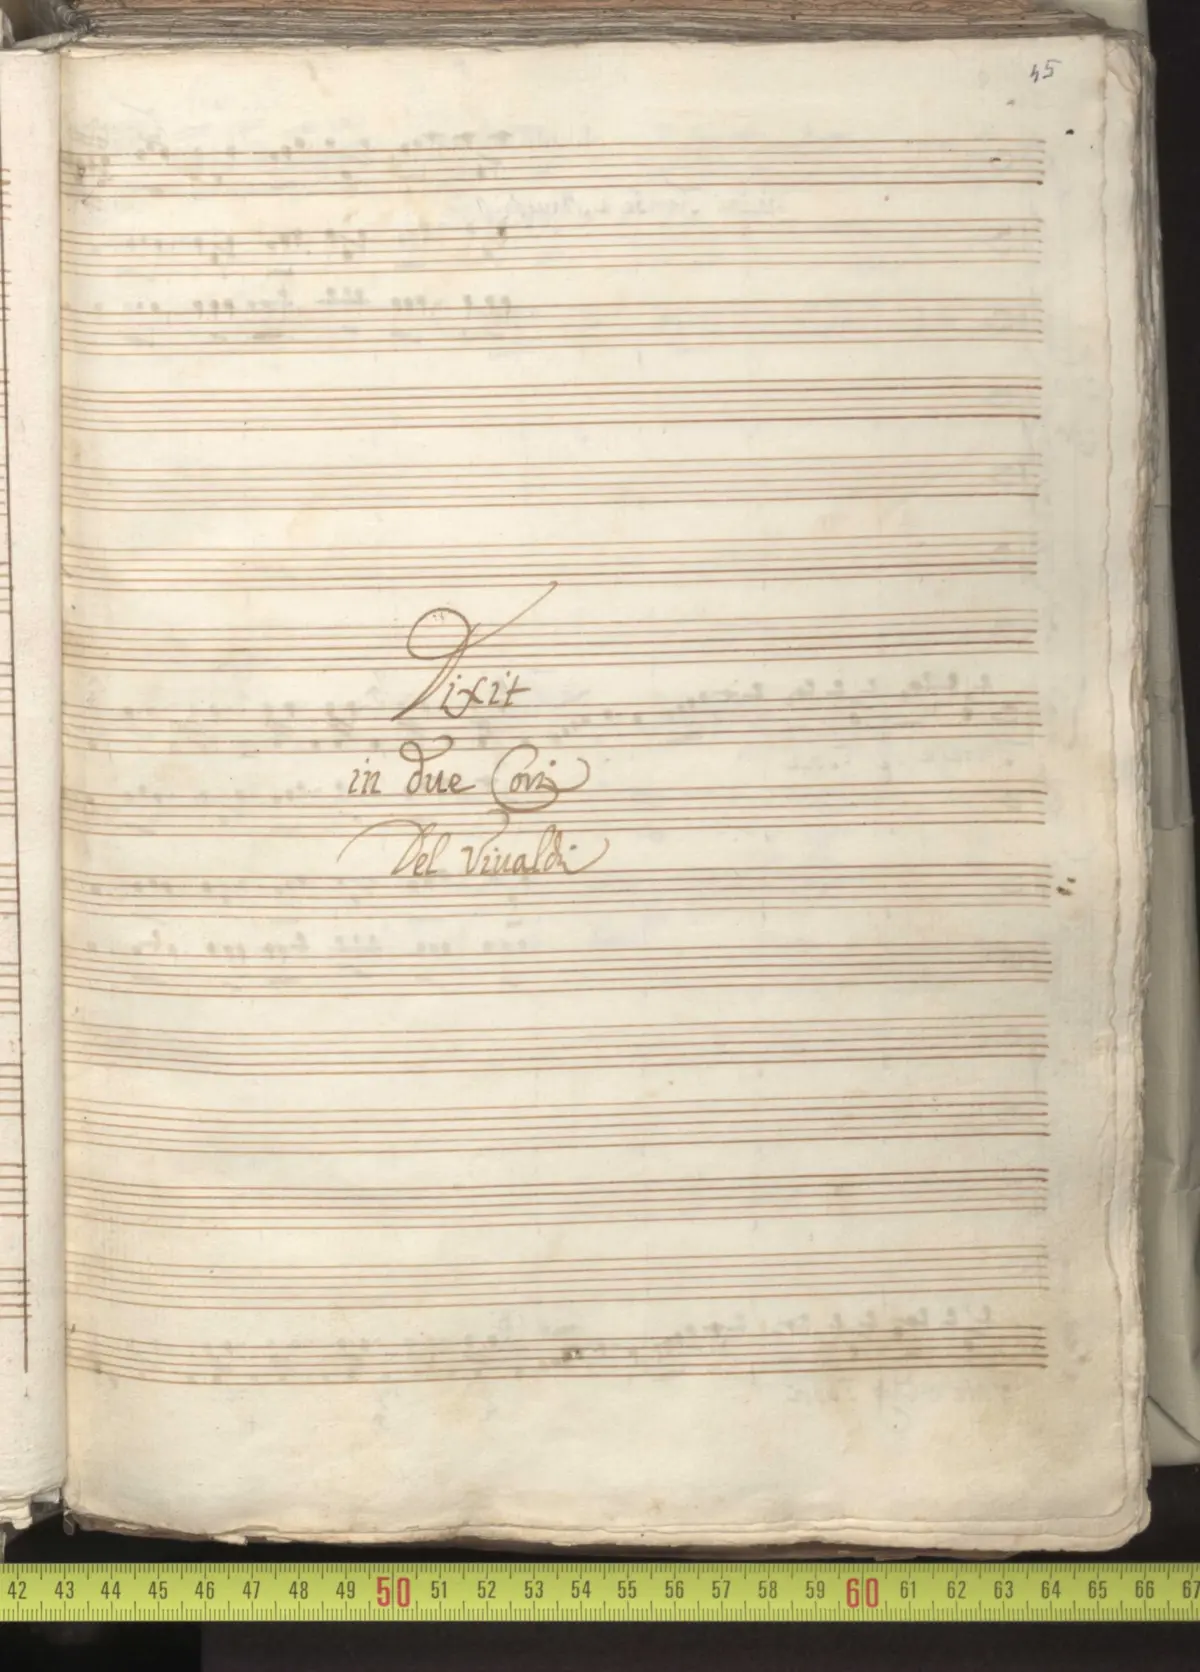 45
Dixit
in due Cori
Del Viualdi
42 43 44 45 46 47 48 49 50 51 52 53 54 55 56 57 58 59 60 61 62 63 64 65 66 67